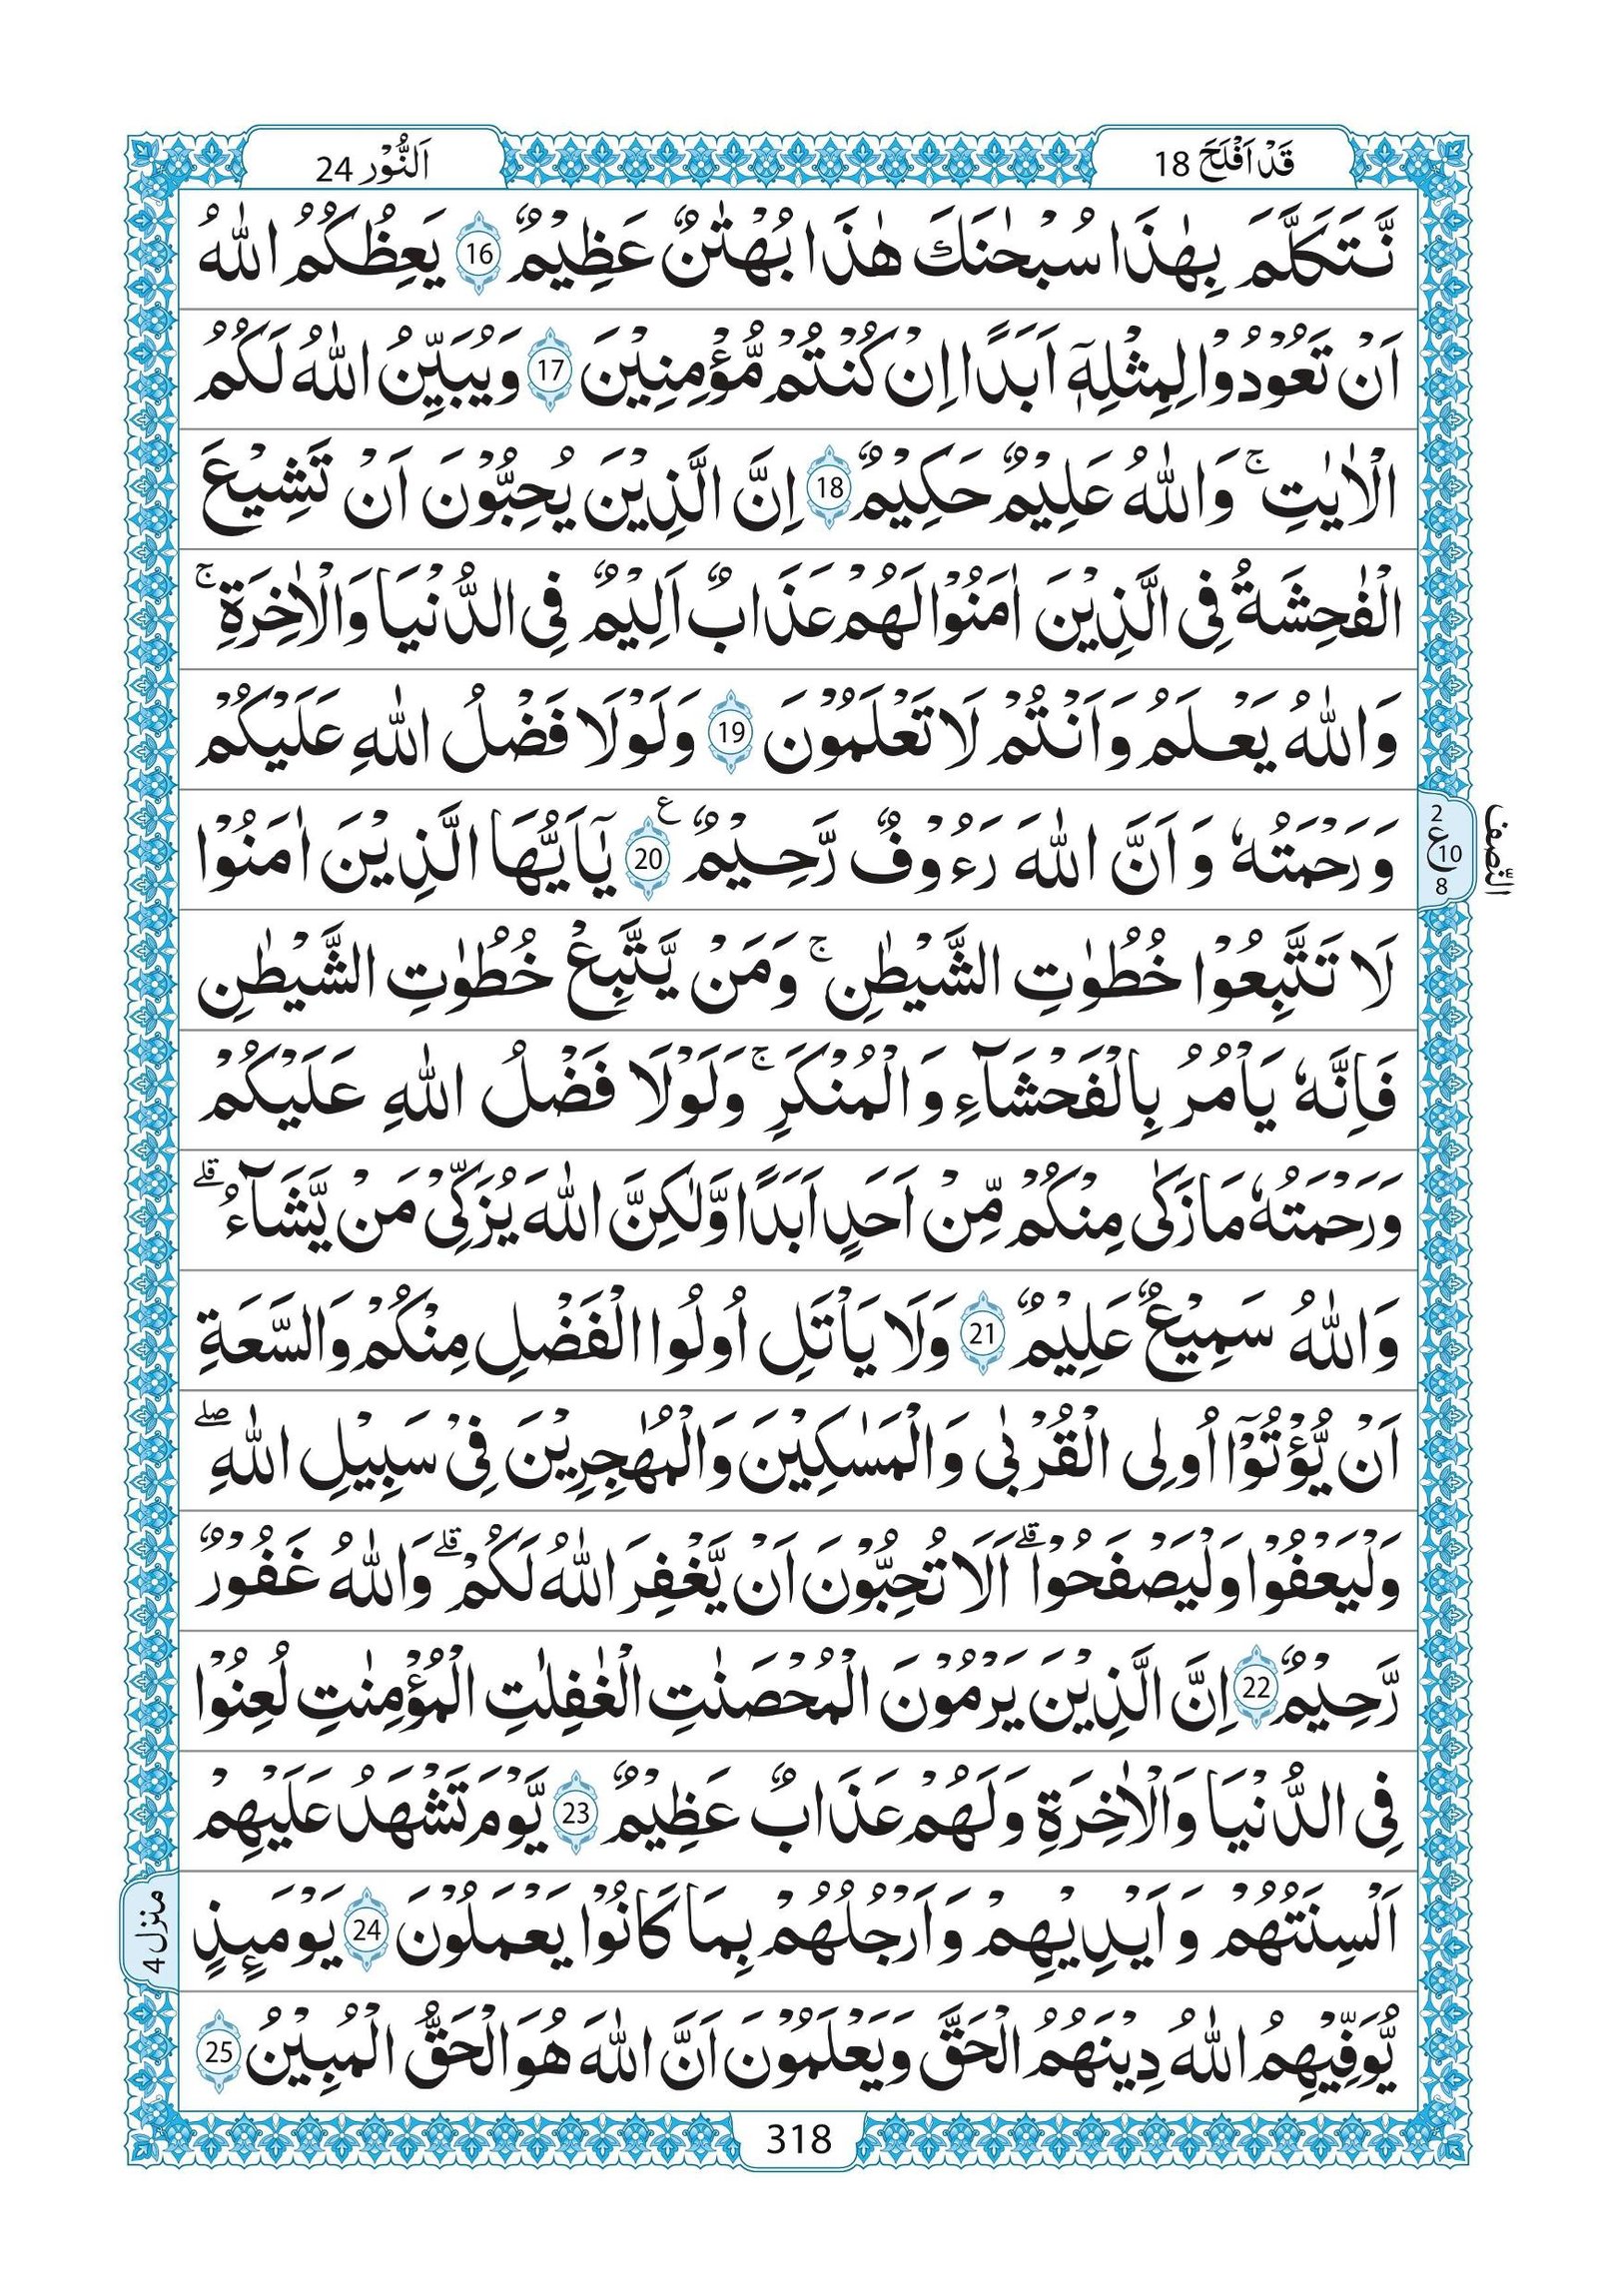 قَدْ اَفْلَحَ 18
اَلنُّوْر 24
نَّتَكَلَّمَ بِهٰذَا سُبْحٰنَكَ هٰذَا بُهْتٰنٌ عَظِيْمٌ 16 يَعِظُكُمُ اللّٰهُ
اَنْ تَعُوْدُوْا لِمِثْلِهٖٓ اَبَدًا اِنْ كُنْتُمْ مُّؤْمِنِيْنَ 17 وَيُبَيِّنُ اللّٰهُ لَكُمُ
الْاٰيٰتِ ۚ وَاللّٰهُ عَلِيْمٌ حَكِيْمٌ 18 اِنَّ الَّذِيْنَ يُحِبُّوْنَ اَنْ تَشِيْعَ
الْفٰحِشَةُ فِى الَّذِيْنَ اٰمَنُوْا لَهُمْ عَذَابٌ اَلِيْمٌ فِى الدُّنْيَا وَالْاٰخِرَةِ ۚ
وَاللّٰهُ يَعْلَمُ وَاَنْتُمْ لَا تَعْلَمُوْنَ 19 وَلَوْلَا فَضْلُ اللّٰهِ عَلَيْكُمْ
وَرَحْمَتُهٗ وَاَنَّ اللّٰهَ رَءُوْفٌ رَّحِيْمٌ 20 ع يٰٓاَيُّهَا الَّذِيْنَ اٰمَنُوْا
2
ع 10
8
النّصف
لَا تَتَّبِعُوْا خُطُوٰتِ الشَّيْطٰنِ ۚ وَمَنْ يَّتَّبِعْ خُطُوٰتِ الشَّيْطٰنِ
فَاِنَّهٗ يَاْمُرُ بِالْفَحْشَآءِ وَالْمُنْكَرِ ۚ وَلَوْلَا فَضْلُ اللّٰهِ عَلَيْكُمْ
وَرَحْمَتُهٗ مَا زَكٰى مِنْكُمْ مِّنْ اَحَدٍ اَبَدًا وَّلٰكِنَّ اللّٰهَ يُزَكِّىْ مَنْ يَّشَآءُ ۗ
وَاللّٰهُ سَمِيْعٌ عَلِيْمٌ 21 وَلَا يَاْتَلِ اُولُوا الْفَضْلِ مِنْكُمْ وَالسَّعَةِ
اَنْ يُّؤْتُوْٓا اُولِى الْقُرْبٰى وَالْمَسٰكِيْنَ وَالْمُهٰجِرِيْنَ فِىْ سَبِيْلِ اللّٰهِ ۖ
وَلْيَعْفُوْا وَلْيَصْفَحُوْا ۗ اَلَا تُحِبُّوْنَ اَنْ يَّغْفِرَ اللّٰهُ لَكُمْ ۗ وَاللّٰهُ غَفُوْرٌ
رَّحِيْمٌ 22 اِنَّ الَّذِيْنَ يَرْمُوْنَ الْمُحْصَنٰتِ الْغٰفِلٰتِ الْمُؤْمِنٰتِ لُعِنُوْا
فِى الدُّنْيَا وَالْاٰخِرَةِ وَلَهُمْ عَذَابٌ عَظِيْمٌ 23 يَّوْمَ تَشْهَدُ عَلَيْهِمْ
اَلْسِنَتُهُمْ وَاَيْدِيْهِمْ وَاَرْجُلُهُمْ بِمَا كَانُوْا يَعْمَلُوْنَ 24 يَوْمَىِٕذٍ
منزل 4
يُّوَفِّيْهِمُ اللّٰهُ دِيْنَهُمُ الْحَقَّ وَيَعْلَمُوْنَ اَنَّ اللّٰهَ هُوَ الْحَقُّ الْمُبِيْنُ 25
318